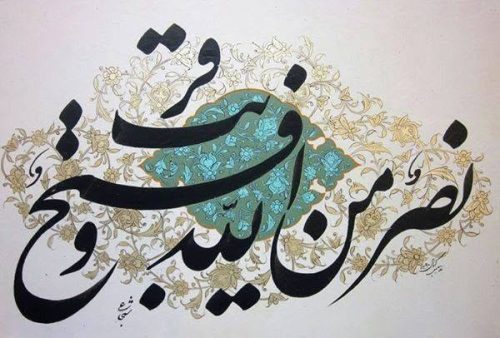 نصر من الله و فتح قریب
شجاعی